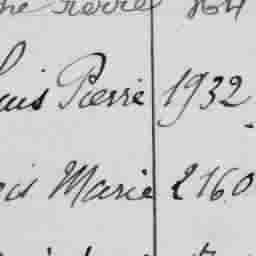 Pierre
uis Pierre 1932
ois Marie 2160